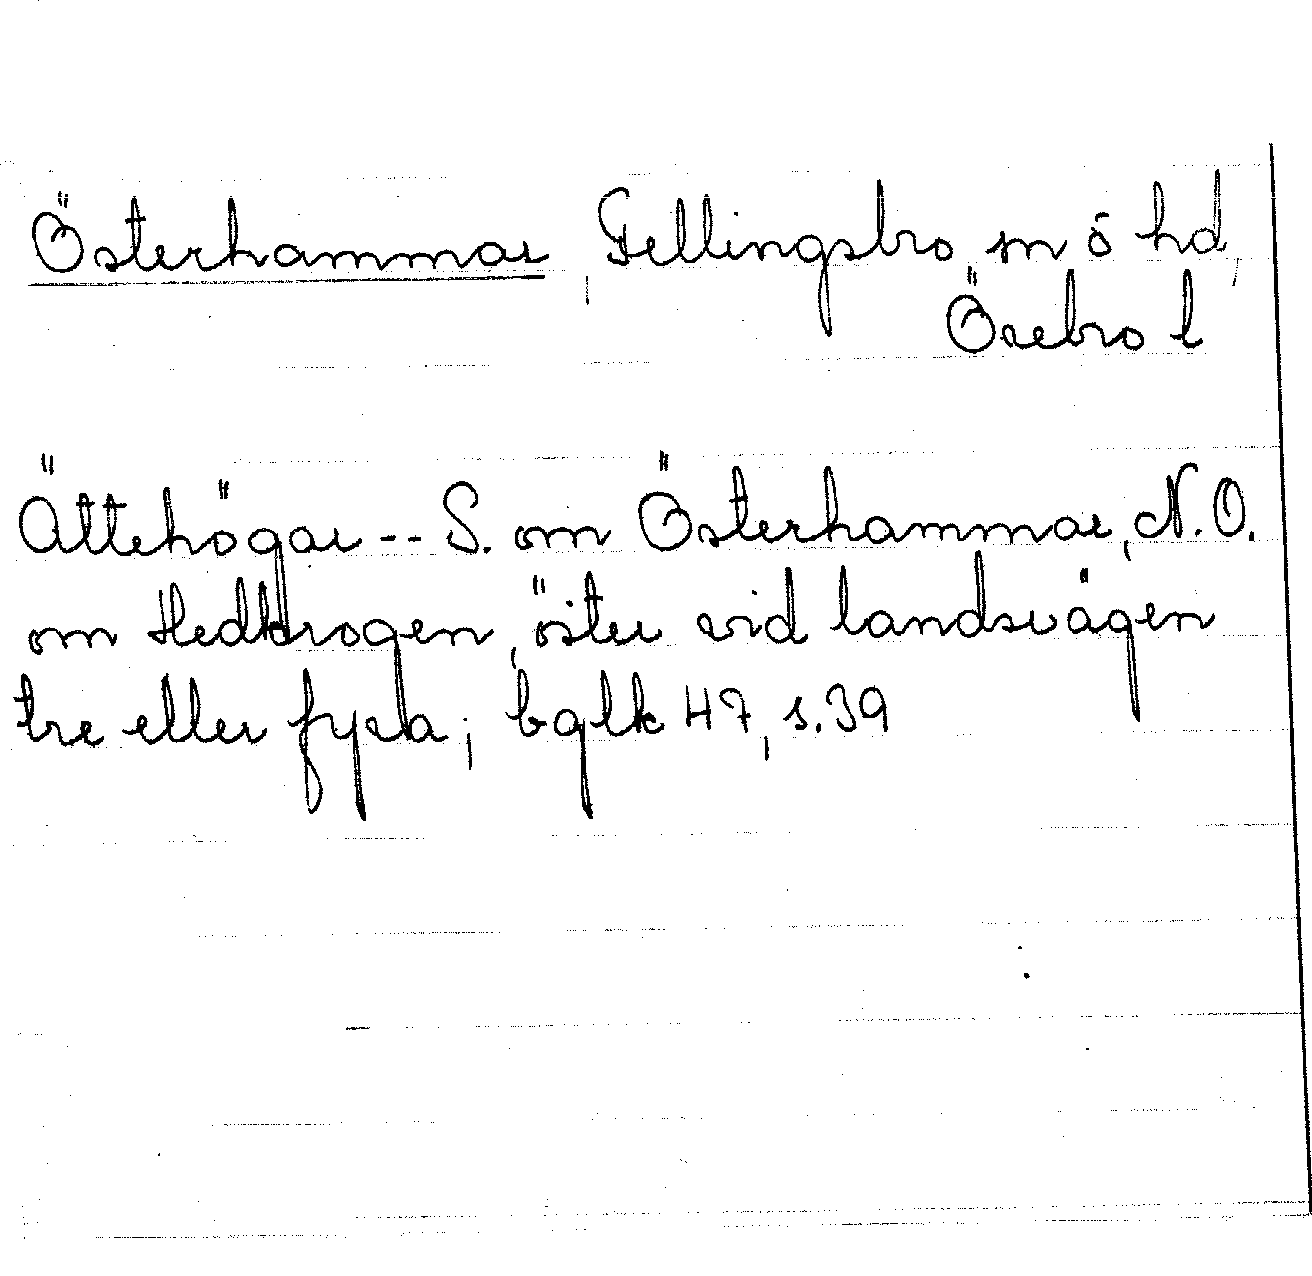 Österhammar, Fellingsbro sn o hd,
Örebro l
Ättehögar -- S. om Österhammar, N.O.
om Hedkrogen, öster vid landsvägen
tre eller fyra; bglk 47, s.39